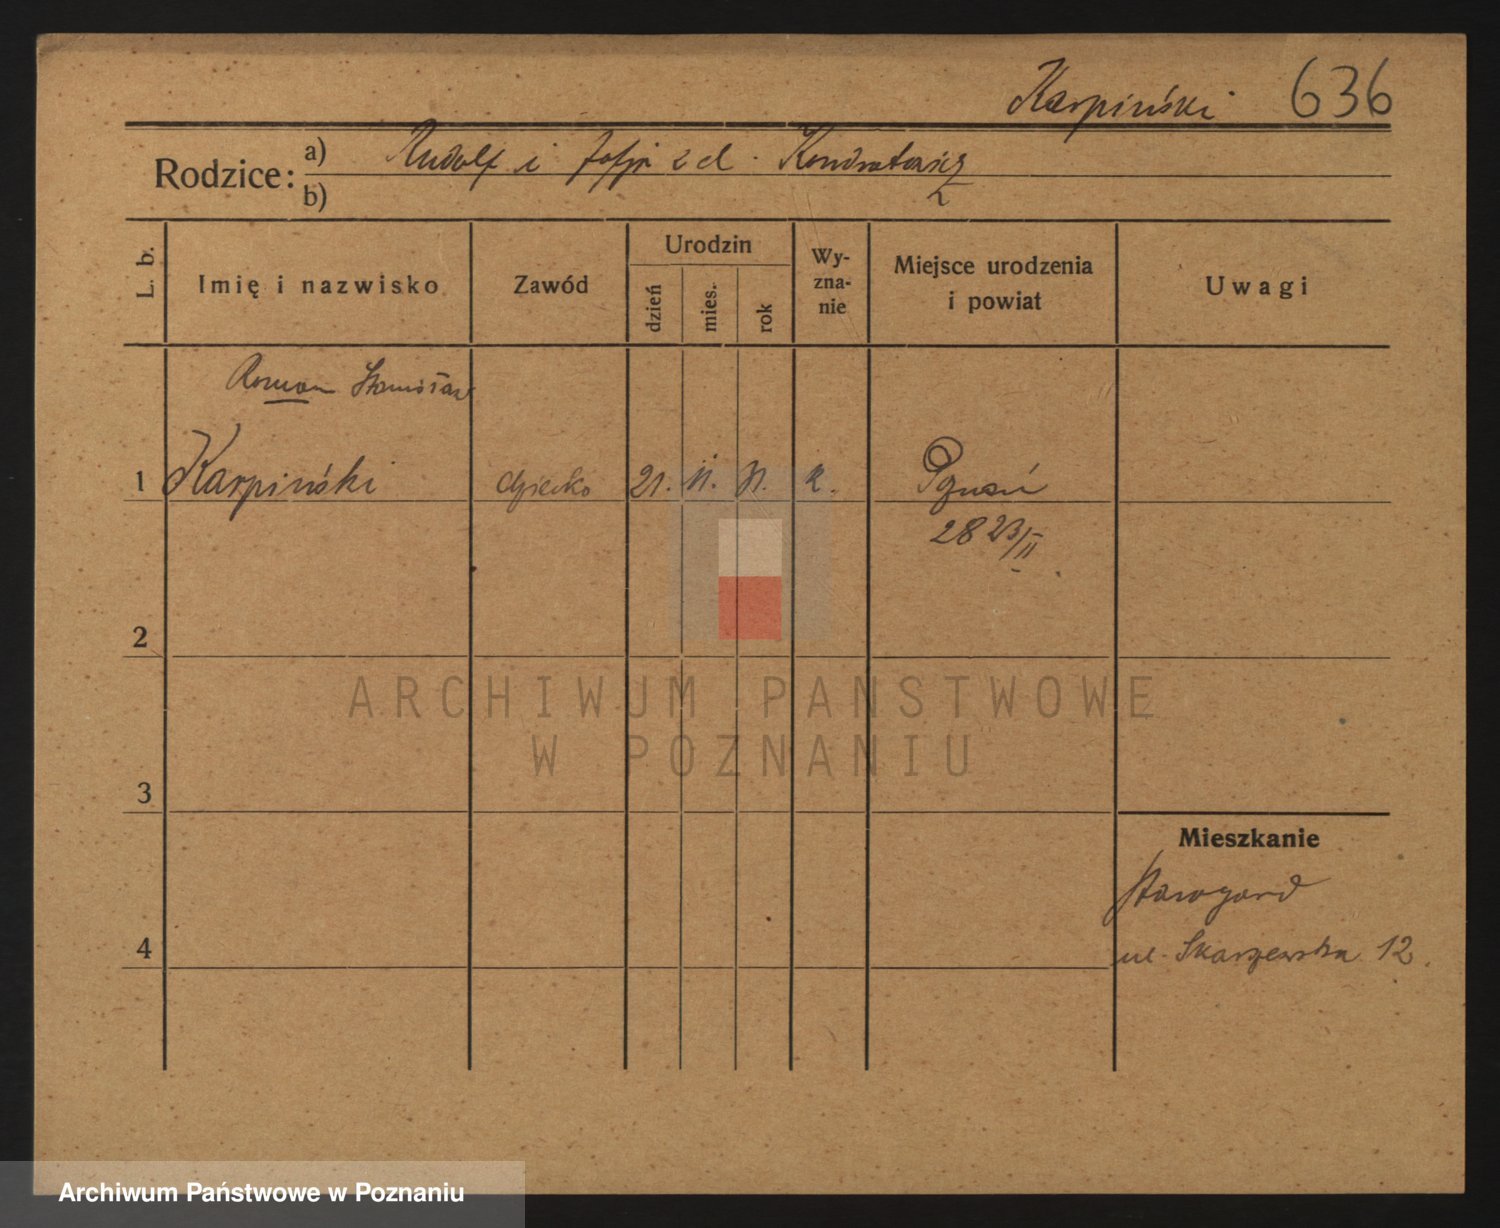 Karpiński 636
Rodzice: a) Rudolf i Zofja z d. Kondratowicz
b)
L. b. Imię i nazwisko Zawód Urodzin dzień mies. rok Wy-zna-nie Miejsce urodzenia i powiat Uwagi
Roman Stanisław
1 Karpiński dziecko 21. 11. 31. k. Poznań
2823/II
2
3
Mieszkanie
Starogard
4 ul. Skarszewska 12.
ARCHIWUM PAŃSTWOWE
W POZNANIU
Archiwum Państwowe w Poznaniu